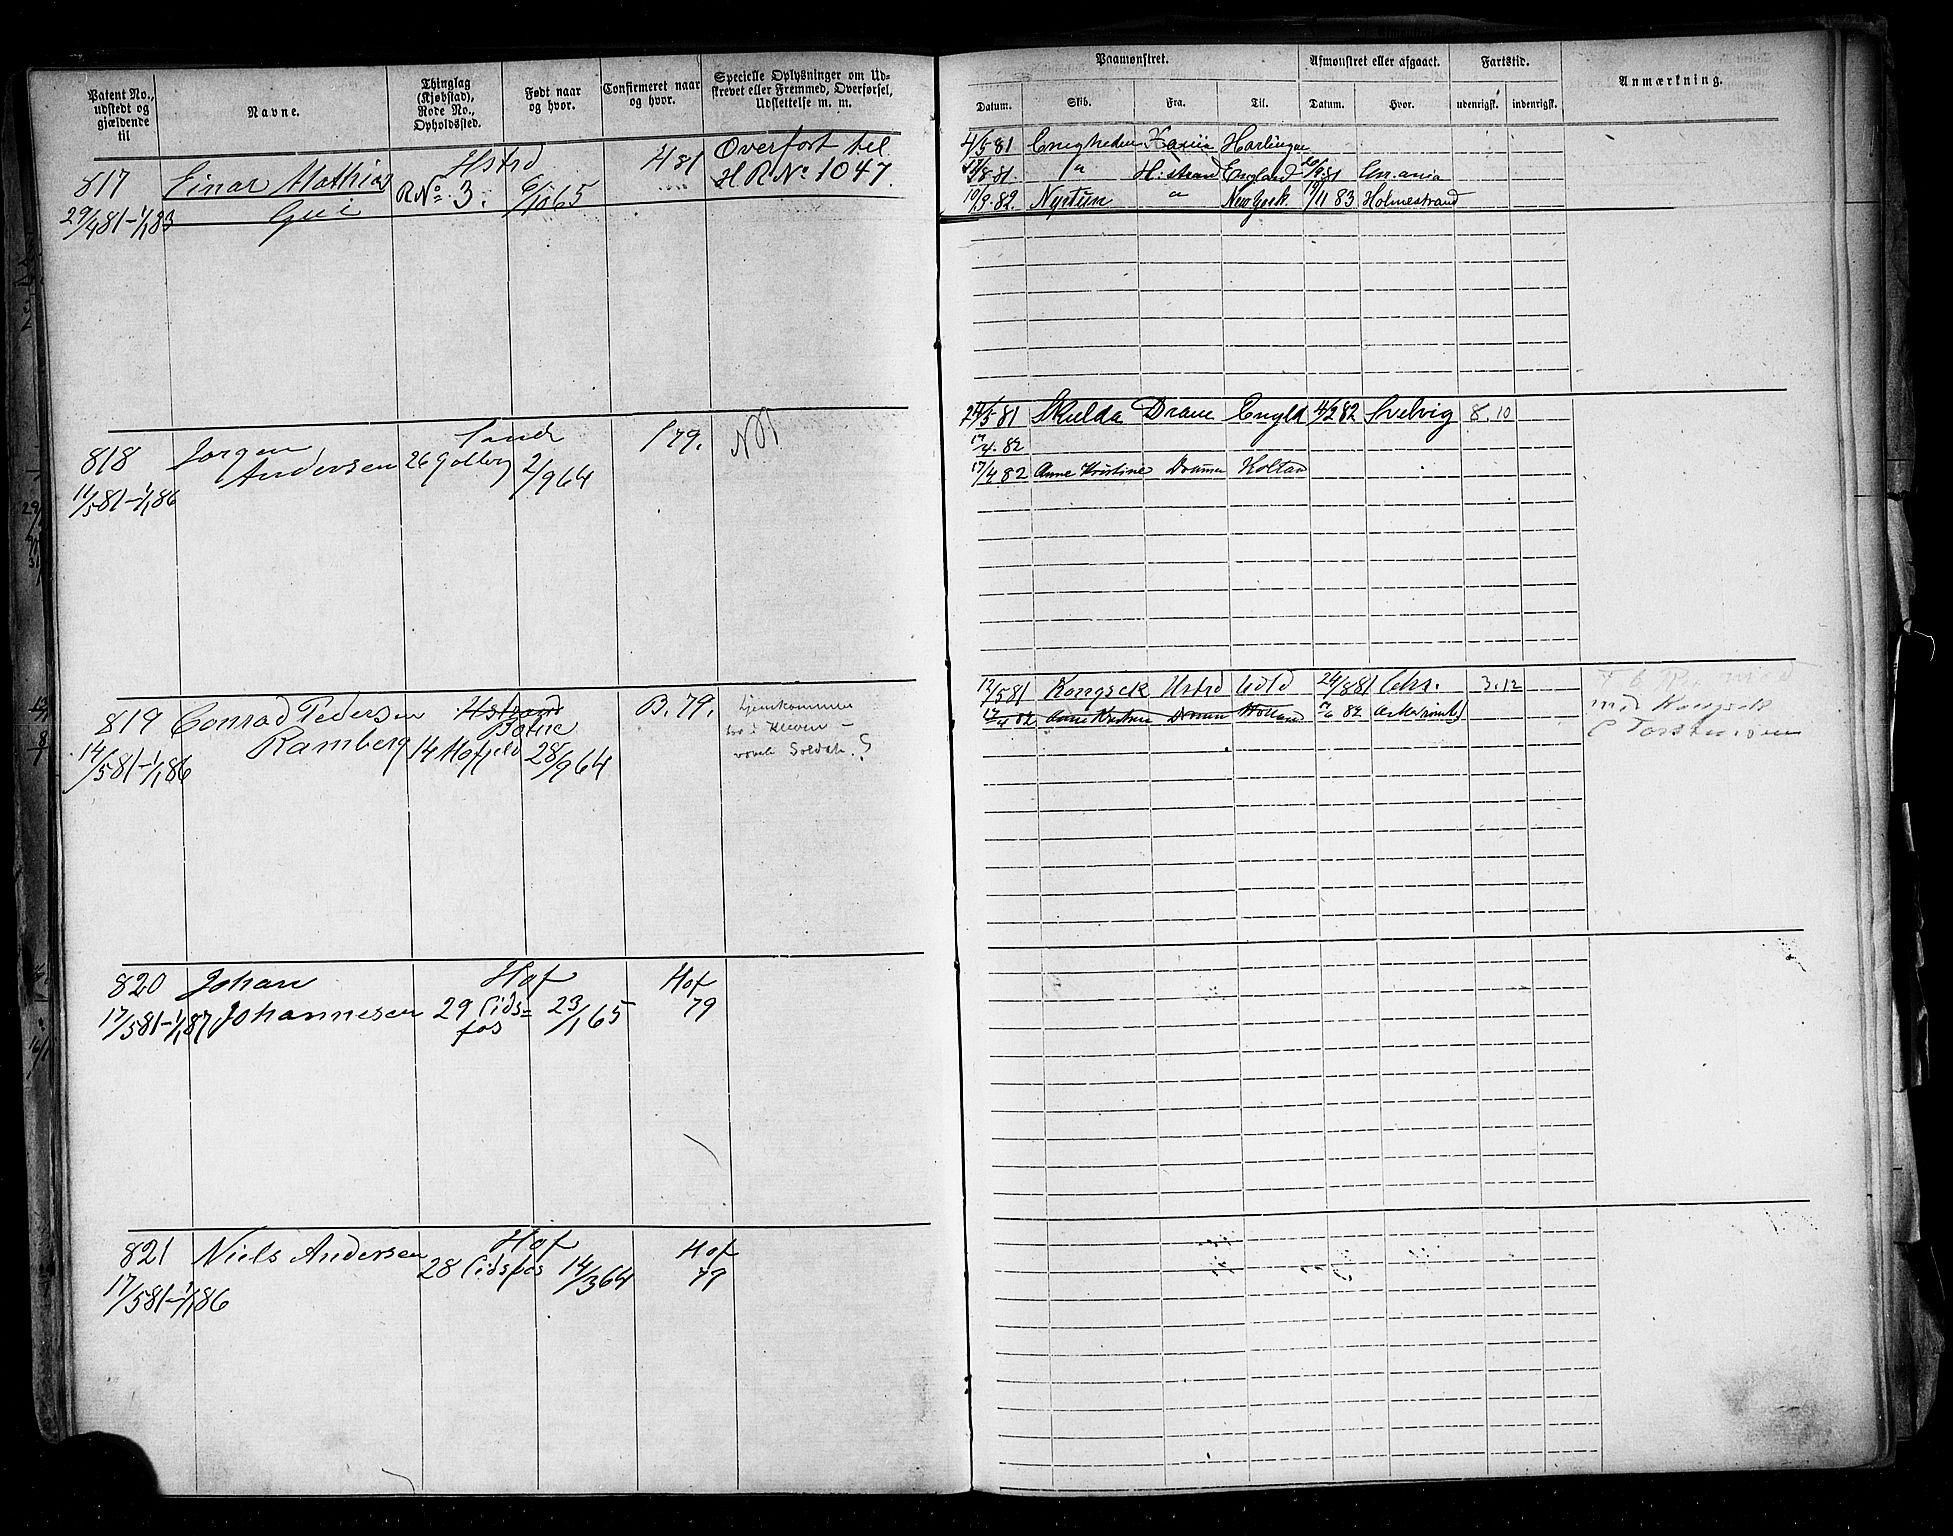 Patent No., udstedt og gjældende til
Navne.
Thinglag (Kjøbstad), Rode No., Opholdssted.
Født naar og hvor.
Confirmeret naar og hvor.
Specielle Oplysninger om Udskrevet eller Fremmed, Overførsel, Udslettelse m. m.
Paamønstret.
Afmønstret eller afgaaet.
Fartstid.
Anmærkning.
Datum.
Skib.
Fra.
Til.
Datum.
Hvor.
udenrigsk.
indenrigsk.
817
29/4 81-1/1 83
Einar Mathias
Hstrd
R No 3.
6/10 65
H 81
Overført til
H R No 1047.
4/5 81 Enigheden Harlingen
17/8 81 " H.strand England
10/9 82. " New York 19/11 83 Holmestrand
818
11/5 81-1/1 86
Jørgen
Andersen
Sande
26
2/9 64
S 79.
24/5 81 Skulda Dram Engld 4/2 82 Svelvig 8.10
17/4 82
17/4 82 Anne Kristine Drammen
819
14/5 81-1/1 86
Conrad Pedersen
Ramberg
Hstrand
Botne
14
28/9 64
B. 79.
Hjemkommen
Soldat. ?
12/5 81 Kongsek Hstrd 24/8 81 Chr. 3.12
17/4 82 Anne Kristine Dram Holland 82
med Kongsek
820
17/5 81-1/1 87
Johan
Johannesen
Hof
29 Eids=
fos
23/1 65
Hof
79
821
17/5 81-1/1 86
Niels Andersen
Hof
28 Eidsfos
14/3 64
Hof
79